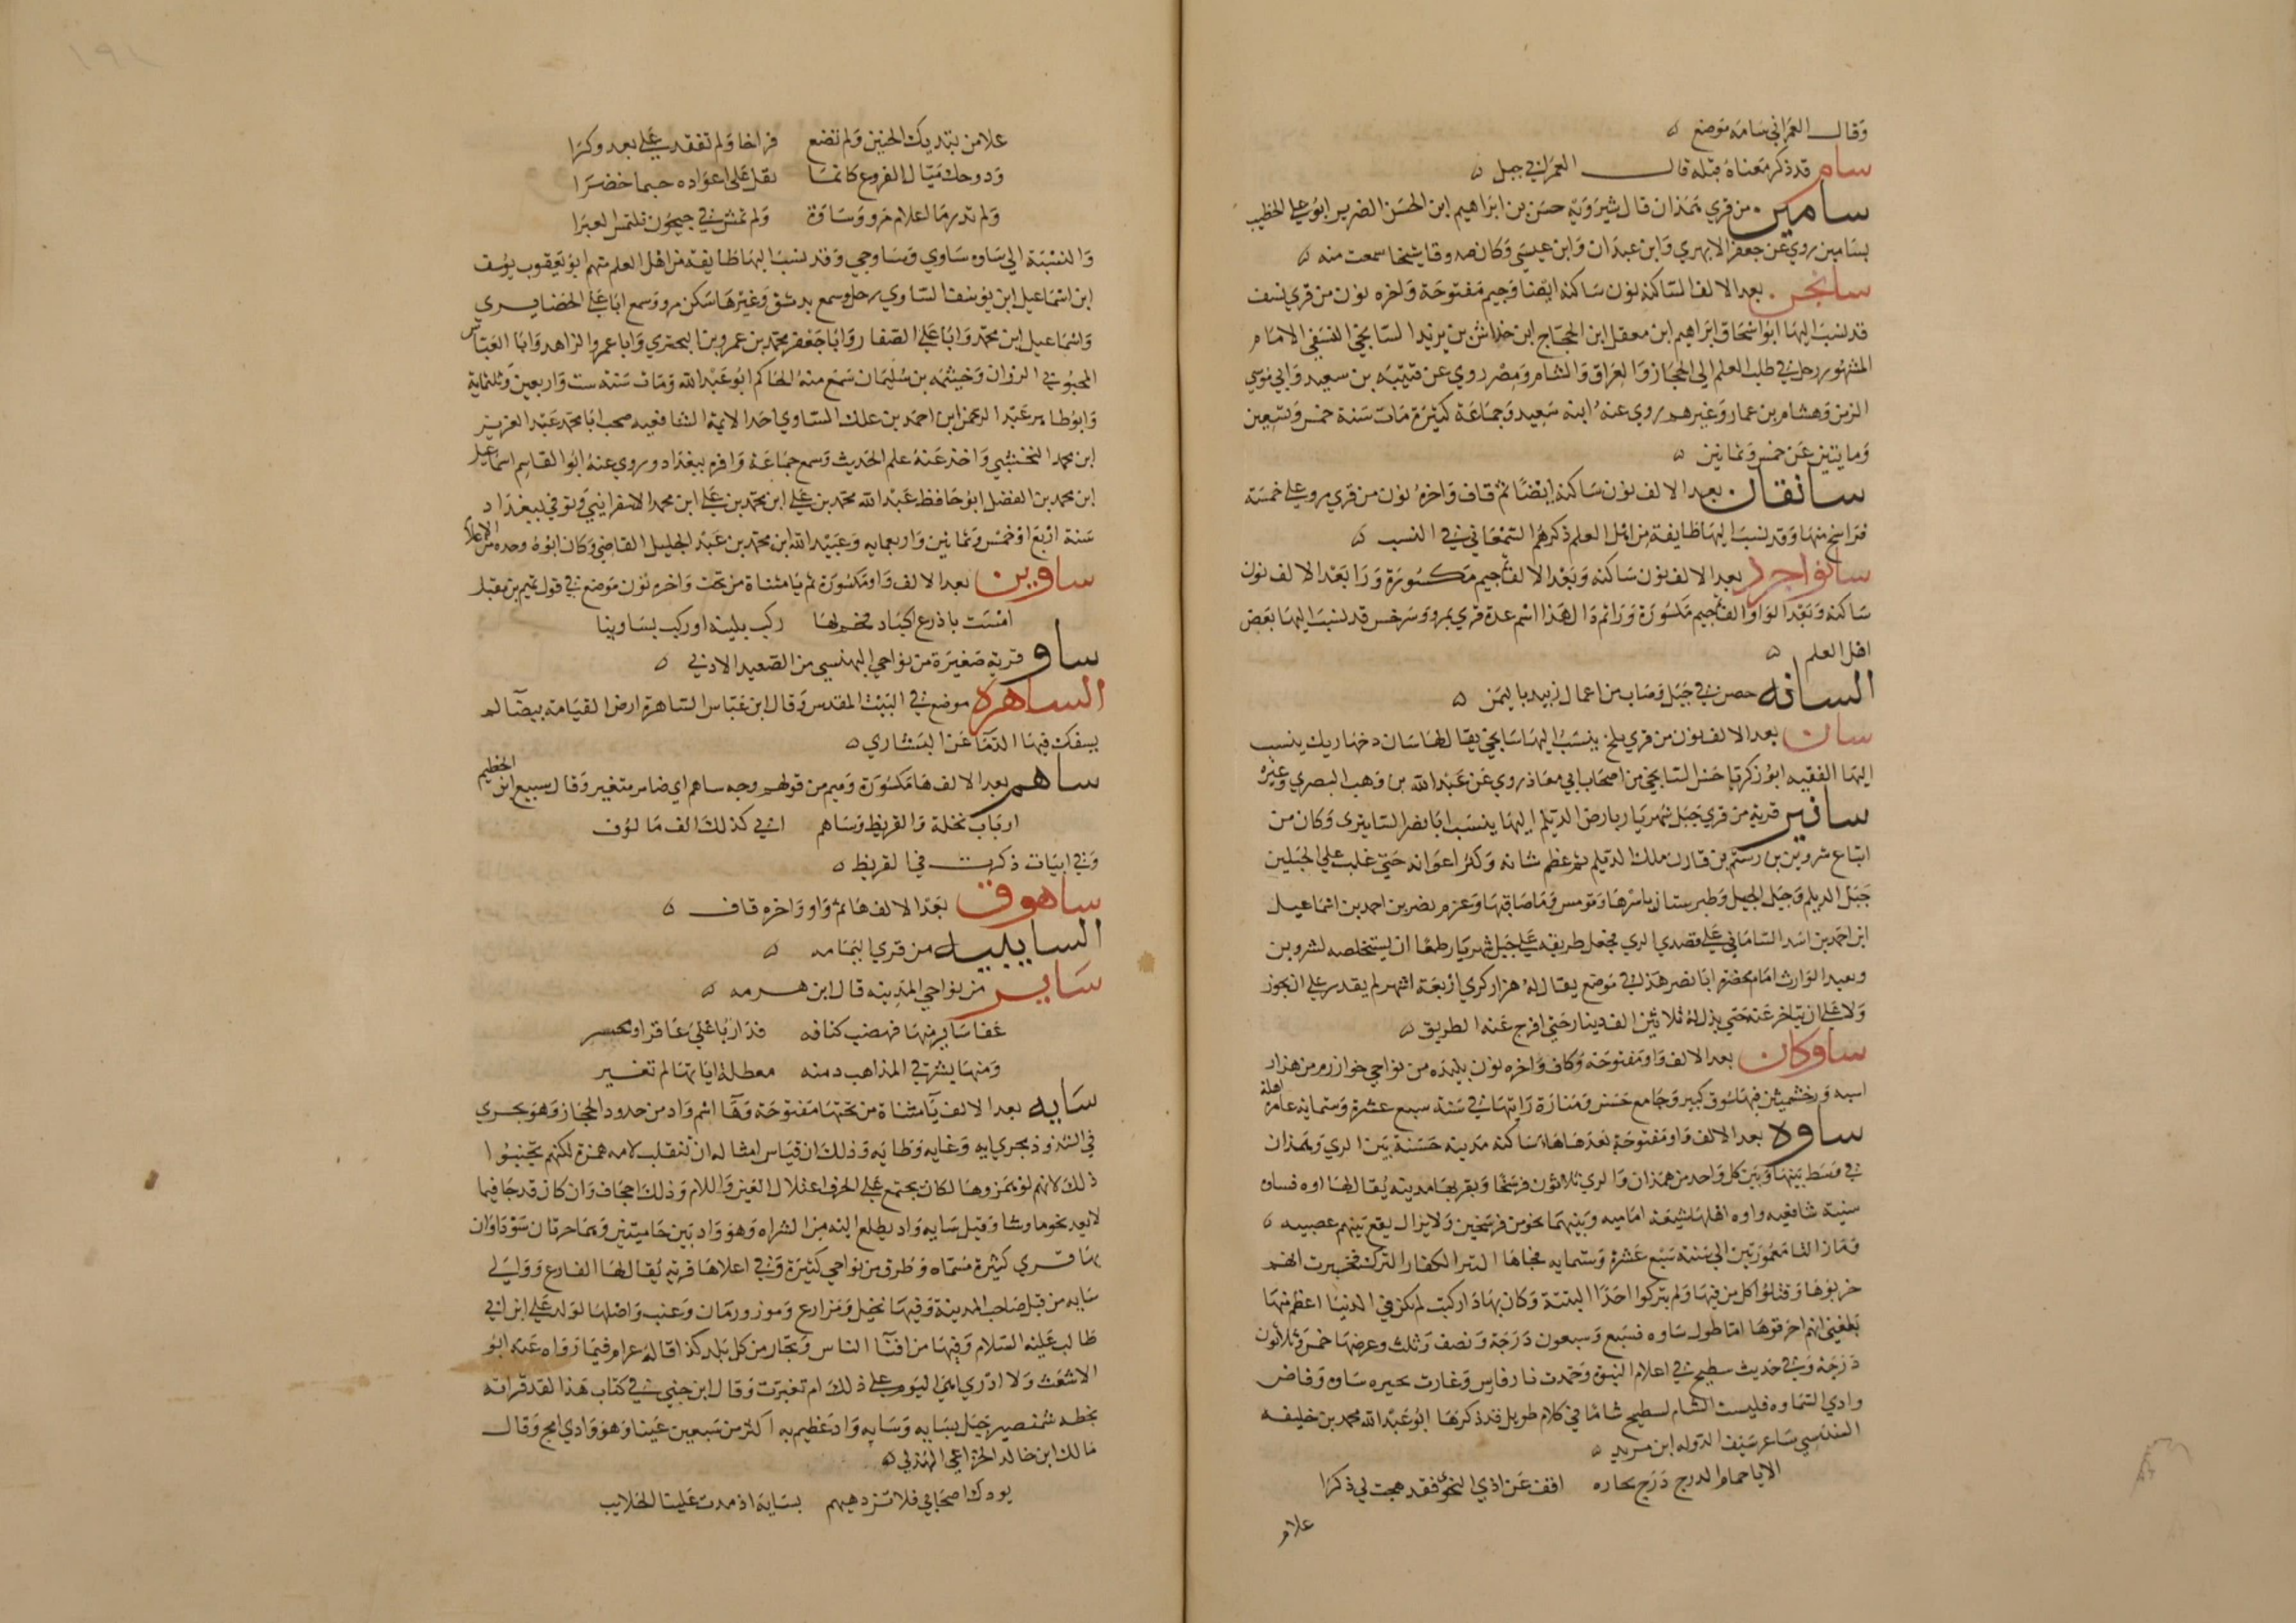 وقال العمراني سامه موضع ه
سام قد ذكر معناه قبله قال العمراني جبل ه
سامين من قري همذان قال شيرويه حسن بن ابراهيم ابن الحسن الضرير ابو علي الخطيب
بسامين روي عن جعفر الابهري وابن عبدان وابن عيسي وكان صدوقا شيخا سمعت منه ه
سانجن بعد الالف الساكنه نون ساكنه ايضا وجيم مفتوحة واخره نون من قري نسف
قد نسب اليها ابو اسحاق ابراهيم ابن معقل ابن الحجاج ابن خداش بن يزيد السانجني النسفي الامام
المشهور رحل في طلب العلم الي الحجاز والعراق والشام ومصر روي عن قتيبه بن سعيد وابي موسي
الزمن وهشام بن عمار وغيرهم روي عنه ابنه سعيد وجماعة كثيرة مات سنة خمس وتسعين
ومايتين عن خمس وثمانين ه
سانقان بعد الالف نون ساكنه ايضا ثم قاف واخره نون من قري مرو علي خمسة
فراسخ منها وقد نسب اليها طايفة من اهل العلم ذكرهم السمعاني في النسب ه
سانواجرد بعد الالف نون ساكنه وبعد الالف جيم مكسورة ورا بعد الالف نون
ساكنه وبعد الواو الف جيم مكسورة ورا ثم دال هذا اسم عدة قري بمرو وسرخس قد نسب اليها بعض
اهل العلم ه
السانه حصن في جبل وصاب من اعمال زبيد باليمن ه
سان بعد الالف نون من قري بلخ ينسب اليها سانجي يقال لها سان دخهاريك ينسب
اليها الفقيه ابو زكريا السانجي من اصحاب ابي معاذ روي عن عبد الله بن وهب البصري وغيره
سانير قرية من قري جبل شهريار بارض الديلم اليها ينسب ابا نصر السانيري وكان من
اتباع شروين بن رستم بن قارن ملك الديلم ثم عظم شانه وكثر اعوانه حتي غلب علي الجبلين
جبل الديلم وجبل الجيل وطبرستان باسرها وقومس وما صاقبها وعزم نصر بن احمد بن اسماعيل
ابن احمد بن اسد الساماني علي قصد الري فجعل طريقه علي جبل شهريار طمعا ان يستخلصه لشروين
وبعبد الوارث امام بحضره ابا نصر هذا في موضع يقال له هزار كري اربعة اشهر لم يقدر علي ان يجوز
ولا علي ان يتاخر عنه حتي بذل له ثلاثين الف دينار حتي افرج عنه الطريق ه
ساوكان بعد الالف واو مفتوحة وكاف واخره نون بليده من نواحي خوارزم من هزار
اسبه ورخشميثن فيها سوق كبير وجامع حسن ومنارة رايتها في سنة سبع عشرة وستمايه عامرة اهلة
ساوه بعد الالف واو مفتوحة بعدها هاء ساكنه مدينه حسنة بين الري وهمذان
في وسط بينها وبين كل واحد من همذان والري ثلاثون فرسخا وبقربها مدينه يقال لها اوه فساوه
سنية شافعيه واوه اهلها شيعة اماميه وبينهما نحو من فرسخين ولا يزال يقع بينهم عصبيه ه
وما زالتا معمورتين الي سنة سبع عشرة وستمايه فجاها التتر الكفار الترك فخبرت انهم
خربوها وقتلوا كل من فيها ولم يتركوا احدا البتة وكان بها دار كتب لم يكن في الدنيا اعظم منها
بلغني انهم احرقوها اما طول ساوه فسبع وسبعون درجة ونصف وثلث وعرضها خمس وثلاثون
درجة وفي حديث سطيح في اعلام النبوة وخمدت نار فارس وغارت بحيره ساوه وفاض
وادي السماوه فليست الشام لسطيح شاما في كلام طويل قد ذكرها ابو عبد الله محمد بن خليفه
السنبسي شاعر سيف الدوله ابن مزيد ه
الا يا حمام الدرج درج بحاره افق عن اذي النجوي فقد هجت لي ذكرا
علام
علام من بتديك الحنين ولم تضع فراخا ولم تفقد علي بعد وكرا
ودوحك ميال الفروع كانما يقل علي اعواده خيما خضرا
ولم تدر ما اعلام مرو وساوة ولم تمش في جيحون تلتمس العبرا
والنسبة الي ساوه ساوي وساوجي وقد نسب اليها طايفة من اهل العلم منهم ابو يعقوب يوسف
ابن اسماعيل ابن يوسف الساوي رحل وسمع بدمشق وغيرها سكن مرو وسمع ابا علي الحضايري
واسماعيل ابن محمد وابا علي الصفار وابا جعفر محمد بن عمرو بن البحتري وابا عمرو الزاهد وابا العباس
المحبوبي الرزان وخيثمه بن سليمان سمع منه الحاكم ابو عبد الله ومات سنة ست واربعين وثلثماية
وابو طاهر عبد الرحمن ابن احمد بن علك الساوي احد الايمة الشافعيه صحب ابا محمد عبد العزيز
ابن محمد النخشبي واخذ عنه علم الحديث وسمع جماعة وافره ببغداد وروي عنه ابو القاسم اسماعيل
ابن محمد بن الفضل ابو حافظ عبد الله محمد بن علي ابن محمد بن علي ابن محمد الاسفرايني وتوفي ببغداد
سنة اربع او خمس وثمانين واربعمايه وعبيد الله ابن محمد بن عبد الجليل القاضي وكان ابوه وحده من الاعلام
ساوين بعد الالف واو مكسورة ثم يا مثناة من تحت واخره نون موضع في قول تميم بن مقبل
امست باذرع اكباد فحم لها ركب بلينه او ركب بساوينا
ساو قريه صغيرة من نواحي البهنسي من الصعيد الادني ه
الساهرة موضع في البيت المقدس وقال ابن عباس الساهرة ارض القيامه بيضا لم
يسفك فيها الدما عن البشاري ه
ساهم بعد الالف ها مكسورة وميم من قولهم وجه ساهم اي ضامر متغير وقال سبيع ابن الخطيم
ارباب نخلة والقريظ وساهم اني كذلك الف مالوف
وفي ابيات ذكرت في القريظ ه
ساهوق بعد الالف ها ثم واو واخره قاف ه
السايبيه من قري اليمامه ه
ساير من نواحي المدينه قال ابن هرمه ه
عفا ساير منها فهضب كنافه فدار باعلي عاقر او محسر
ومنها بشرقي المذاهب دمنه معطلة اياتها لم تغير
سايه بعد الالف يا مثناة من تحتها مفتوحة وها اسم واد من حدود الحجاز وهو يجري
في الشذوذ مجري ايه وغايه وطايه وذلك ان قياس امثاله ان تنقلب لامه همزة لكنهم تجنبوا
ذلك لانهم لو همزوها لكان يجتمع علي الحرف اعتلال العين واللام وذلك اجحاف وان كان قد جا فيما
لا يعد نحو ما وشا وقيل سايه واد يطلع اليه من الشراه وهو واد بين حاميتين وهما حرتان سوداوان
بها قري كثيرة مسماه وطرق من نواحي كثيرة وفي اعلاها قرية يقال لها الفارع ووالي
سايه من قبل صاحب المدينة وفيها نخيل ومزارع وموز ورمان وعنب واصلها لولد علي ابن ابي
طالب عليه السلام وفيها من افنا الناس وتجار من كل بلد كذا قاله عرام فيما رواه عنه ابو
الاشعث ولا ادري اهي اليوم علي ذلك ام تغيرت وقال ابن جني في كتاب هذا لقد قراته
بخطه شمنصير جبل بسايه وسايه واد عظيم به اكثر من سبعين عينا وهو وادي امج وقال
مالك ابن خالد الخزاعي الهذلي ه
بودك اصحابي فلا تزدهيهم بساية اذ مدت علينا الحلايب